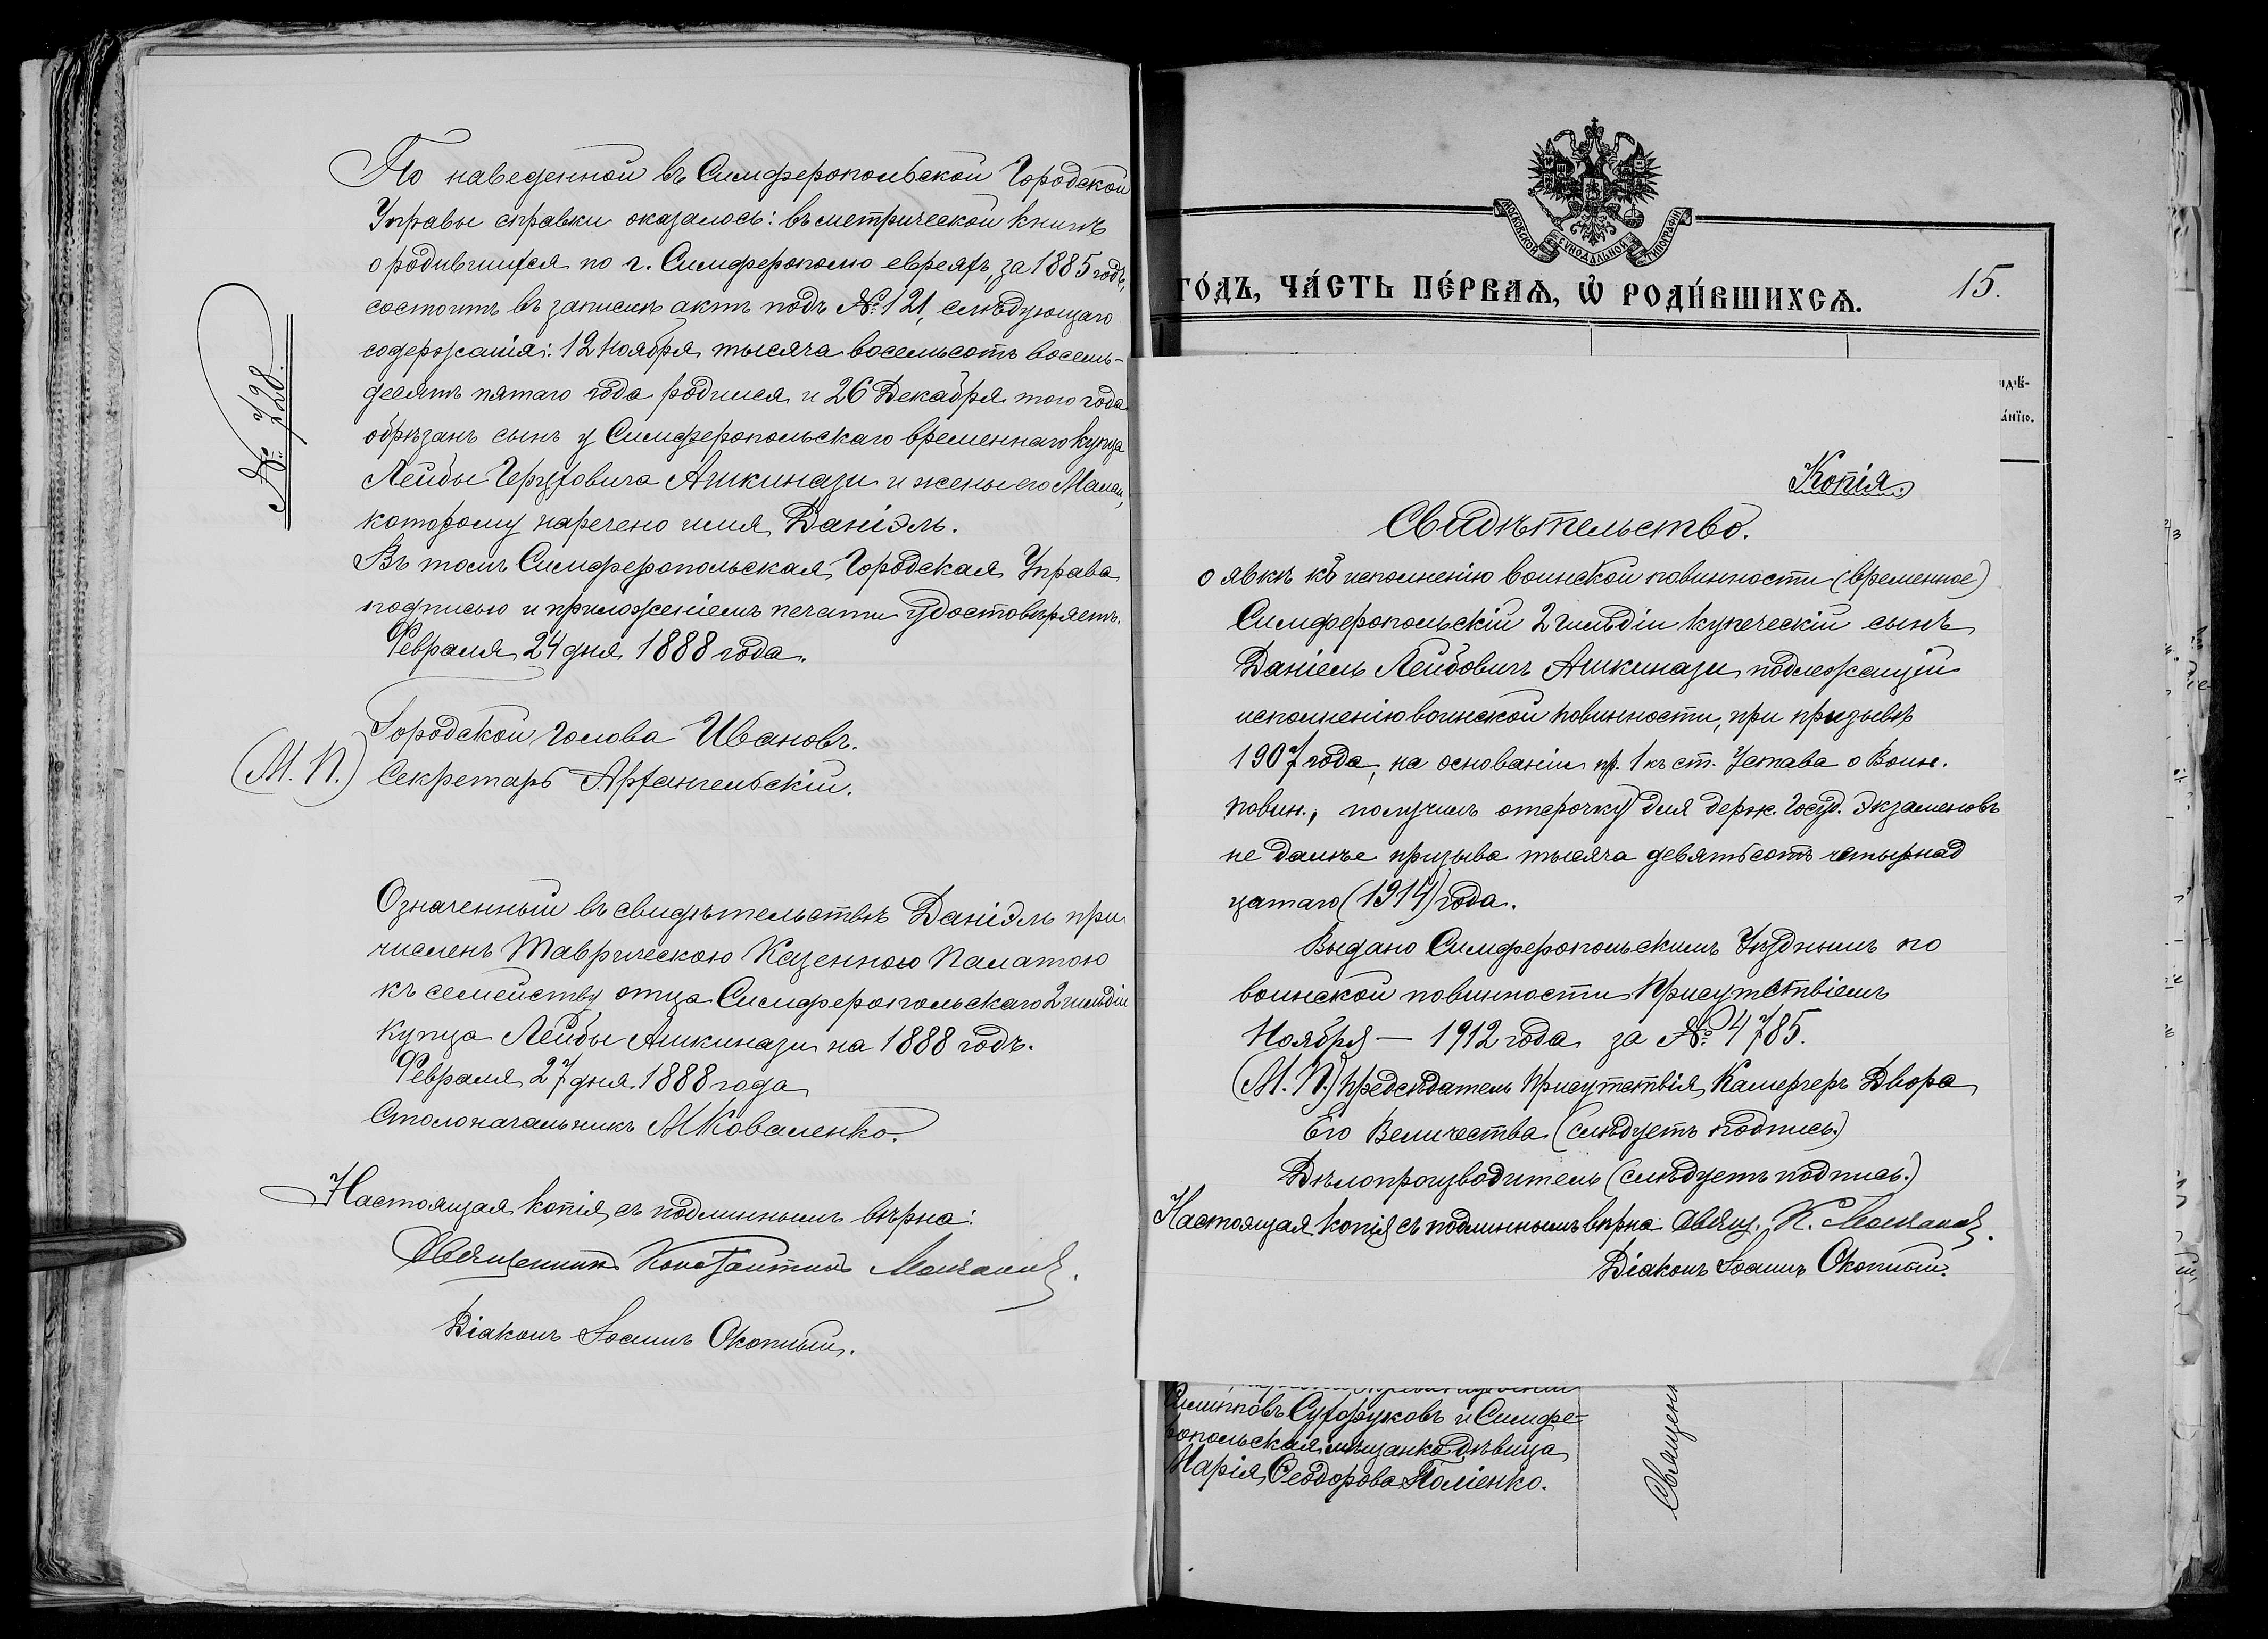 № 728.
По наведенной въ Симферопольской Городской
Управы справки оказалось: въ метрической книгѣ
о родившихся по г. Симферополю евреяхъ, за 1885 годъ,
состоитъ въ запискѣ актъ подъ № 121, слѣдующаго
содержанія: 12 Ноября тысяча восемьсотъ восемь-
десятъ пятаго года родился и 26 Декабря того года
обрѣзанъ сынъ у Симферопольскаго временнаго купца
Лейбы Герцовича Ашкинази и жены его
которому наречено имя Даніэль.
Въ томъ Симферопольская Городская Управа
подписью и приложеніемъ печати удостовѣряетъ.
Февраля 24 дня 1888 года.
Городской голова Ивановъ.
(М. П.) Секретарь Архангельскій.
Означенный въ свидѣтельствѣ Даніэль при
численъ Таврическою Казенною Палатою
къ семейству отца Симферопольскаго 2 гильдіи
купца Лейбы Ашкинази на 1888 годъ.
Февраля 27 дня 1888 года
Столоначальникъ М Коваленко.
Настоящая копія съ подлиннымъ вѣрна:
Священникъ Константинъ
Діаконъ Іоаннъ Окопный.
МОСКОВСКОЙ СѴНОДАЛЬНОЙ ТИПОГРАФІИ
ГО́ДЪ, ЧА́СТЬ ПЕ́РВАѦ, Ѡ҆ РОДИ́ВШИХСѦ.
15.
Копія.
Свидѣтельство.
о явкѣ къ исполненію воинской повинности (временное)
Симферопольскій 2 гильдіи купеческій сынъ
Даніель Лейбовичъ Ашкинази, подлежащій
исполненію воинской повинности, при призывѣ
1907 года, на основаніи пр. 1 къ ст. Устава о Воин.
повин., получилъ отсрочку для держ. Госуд. Экзаменовъ
не далѣе призыва тысяча девятьсотъ четырнад
цатаго (1914) года.
Выдано Симферопольскимъ Уѣзднымъ по
воинской повинности Присутствіемъ
Ноября — 1912 года за № 4785.
(М. П.) Предсѣдатель Присутствія, Камергеръ Двора
Его Величества (слѣдуетъ подпись.)
Дѣлопроизводитель (слѣдуетъ подпись.)
Настоящая копія съ подлиннымъ вѣрна: Свящ. К.
Діаконъ Іоаннъ Окопный.
Сухоруковъ и Симфе-
ропольская мѣщанка дѣвица
Марія Ѳеодорова Поліенко.
Священн